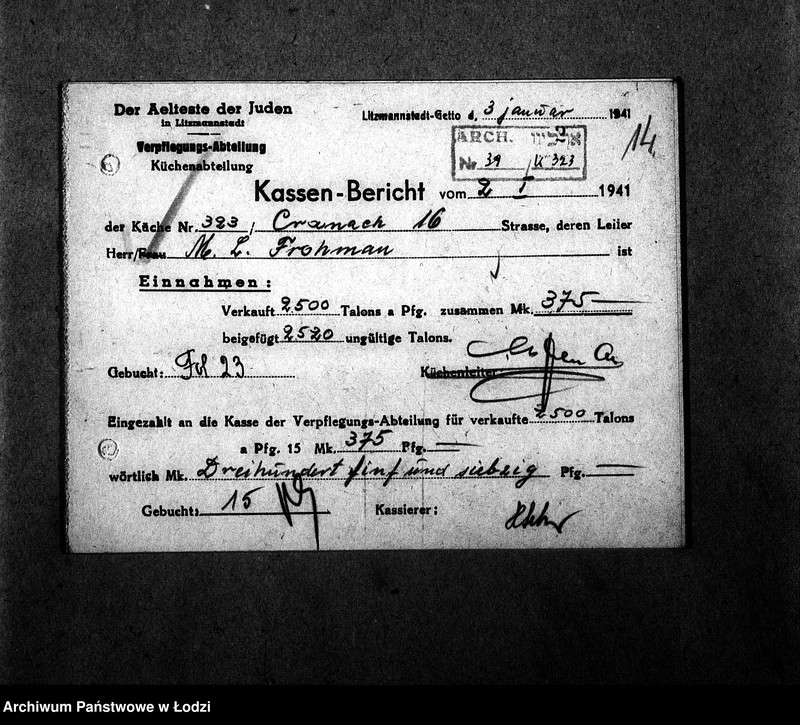 Der Aelteste der Juden
in Litzmannstadt
Verpflegungs-Abteilung
Küchenabteilung
Litzmannstadt-Getto d. 3 januar 1941
ARCH.
Nr. 39 / 323
14.
Kassen-Bericht vom 2 I 1941
der Küche Nr. 323 / Cranach 16 Strasse, deren Leiter
Herr/Frau M. L. Frohman ist
Einnahmen:
Verkauft 2500 Talons a Pfg. zusammen Mk. 375 —
beigefügt 2520 ungültige Talons.
Gebucht: Fol 23
Küchenleiter
Eingezahlt an die Kasse der Verpflegungs-Abteilung für verkaufte 2500 Talons
a Pfg. 15 Mk. 375 Pfg. —
wörtlich Mk. Dreihundert finf und siebzig Pfg. —
Gebucht: 15
Kassierer:
Archiwum Państwowe w Łodzi